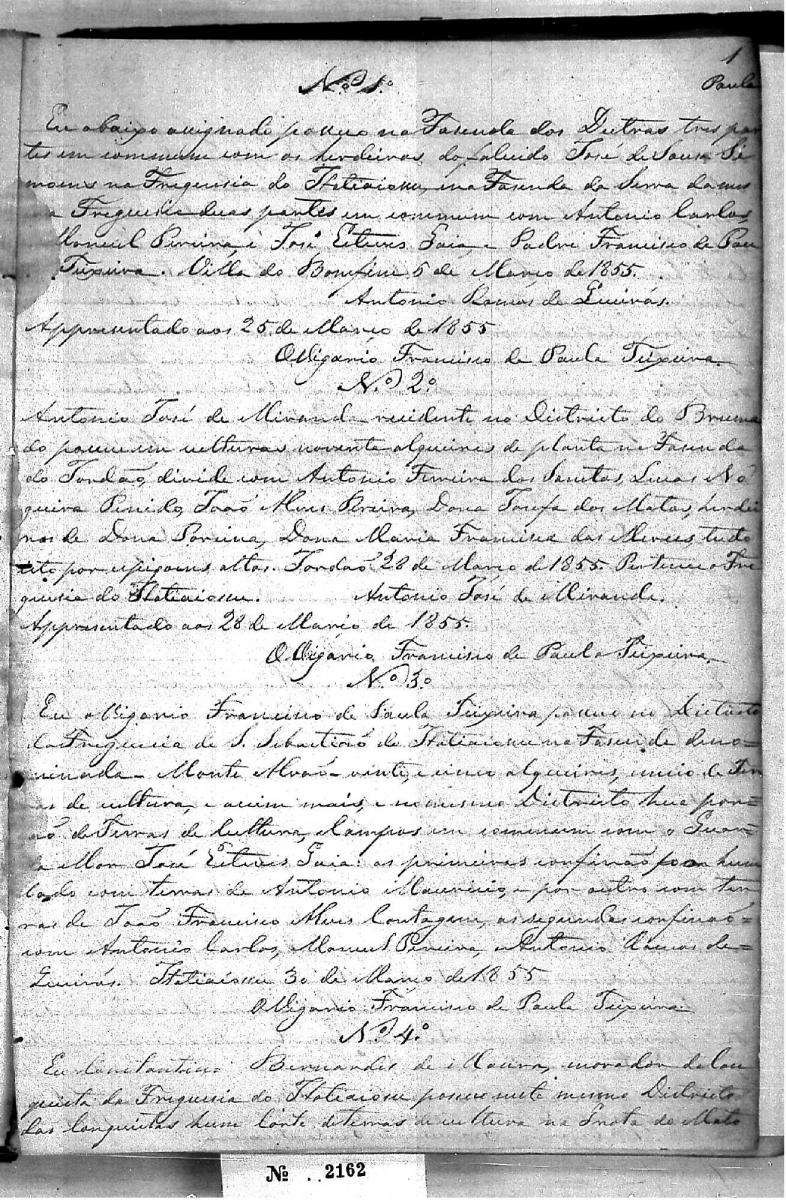 1
Paula
Nº 1º
Eu abaixo assignado possuo na Fasenda dos Dutras tres par
tes em commum com os herdeiros do falecido José de Sousa Si
moens na Freguesia do Itatiaiossu, e na Fasenda da Serra da mes
ma Freguesia duas partes em commum com Antonio Carlos
Manoel Pereira, e José Esteves Gaia, e Padre Francisco de Pau
Teixeira. Villa do Bomfim 5 de Março de 1855.
Antonio Ramos de Queirós.
Appresentado aos 25 de Março de 1855
O Vigario Francisco de Paula Teixeira.
Nº 2º
Antonio José de Miranda residente no Districto do Bruma
do possue em culturas noventa alqueires de planta na Fasenda
do Jordão, divide com Antonio Ferreira dos Santos, Lucas No
gueira Penido, João Alves Pereira, Dona Josefa dos Matos, herdei
ros de Dona Porcina, Dona Maria Francisca das Merces, tudo
isto por espigoens altos. Jordaõ 28 de Março de 1855. Pertence a Fre
guesia do Itatiaiossu. Antonio José de Miranda.
Appresentado aos 28 de Março de 1855.
O Vigario Francisco de Paula Teixeira.
Nº 3º
Eu o Vigario Francisco de Paula Teixeira possuo no Districto
da Freguesia de S. Sebastiaõ do Itatiaiossu na Fasenda deno-
minada - Monte Alvaõ - vinte, e cinco alqueires, e meio de Ter
ras de cultura, e assim mais, e no mesmo Districto hua por-
çaõ de Terras de Cultura, e Campos em commum com o Guar-
da Mor José Esteves Gaia: as primeiras confinaõ por hum
lado com terras de Antonio Mauricio, e por outro com ter
ras de Joaõ Francisco Alves Contagem, as segundas confinaõ
com Antonio Carlos, Manoel Pereira, e Antonio Ramos de
Queirós. Itatiaiossu 30 de Março de 1855
O Vigario Francisco de Paula Teixeira.
Nº 4º
Eu Constantino Bernardes de Moura, morador da Con
quista da Freguesia do Itatiaiossu possuo neste mesmo Districto
das Conquistas hum Corte de terras de cultura na Grota do Mato
Nº 2162